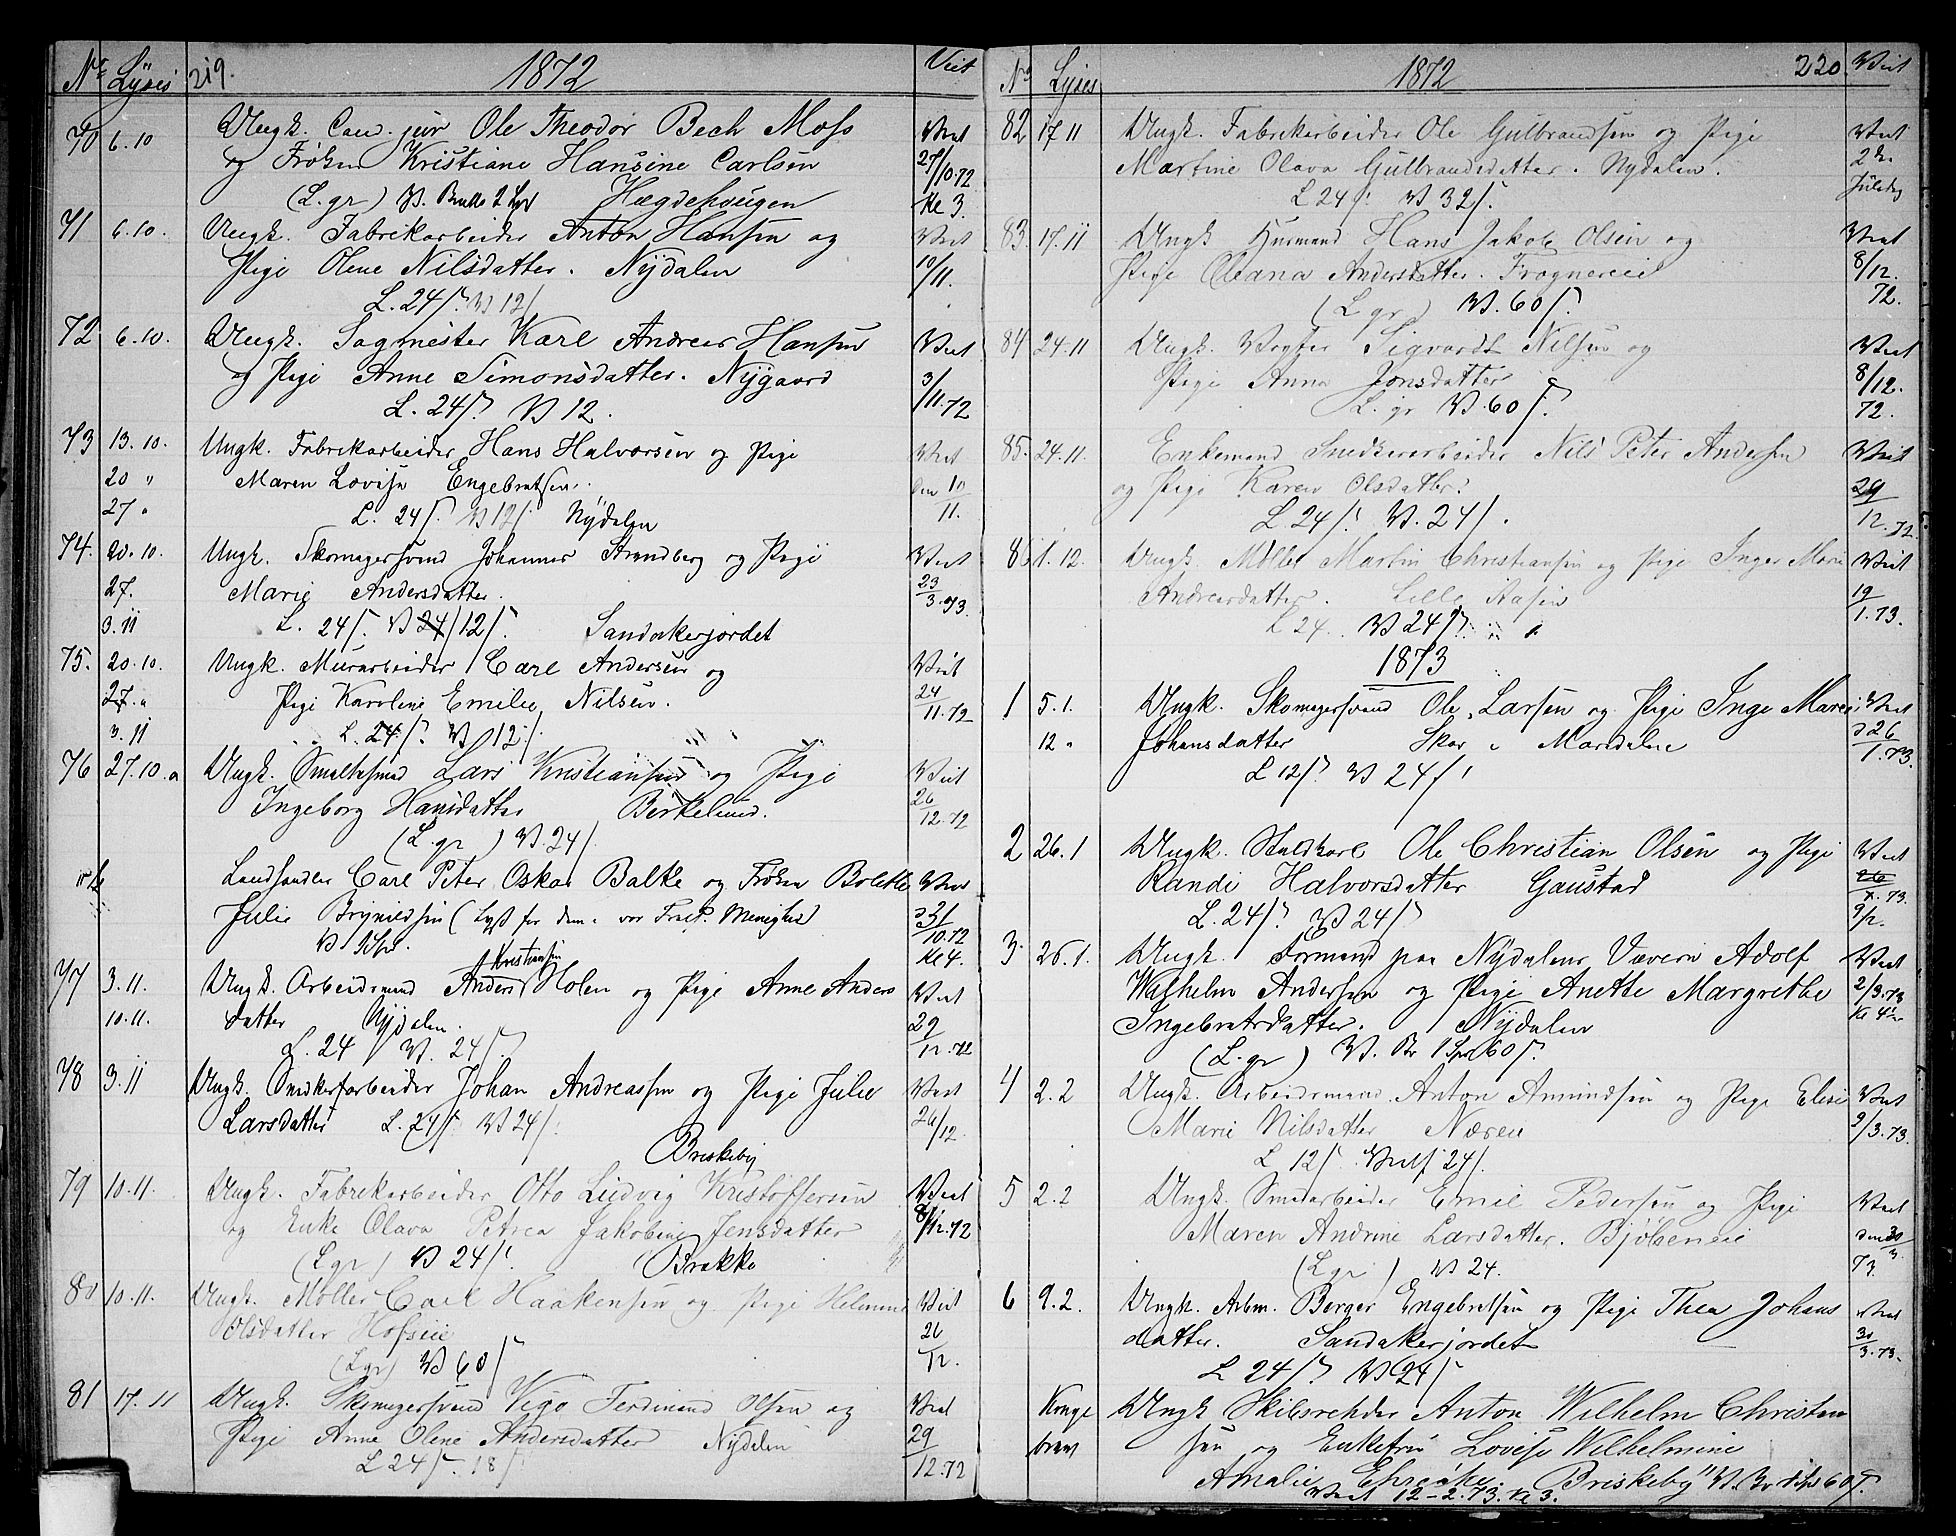 No Lyses 219. 1872 Viet
70 6.10 Ungk. Cand. jur Ole Theodor Bech Moss Viet
og Frøken Kristiane Hansine Carlsen 27/10.72
(L.gr) Hægdehougen Kl 3.
71 6.10. Ungk. Fabrikarbeider Anton Hansen og Viet
Pige Olene Nilsdatter. Nydalen 10/11.
L. 24/. V 12/
72 6.10. Ungk. Sagmester Karl Andreas Hansen Viet
og Pige Anne Simonsdatter. Nygaard 3/11.72
L. 24/ V 12.
73 13.10. Ungk. Fabrikarbeider Hans Halvorsen og Pige Viet
20 " Maren Lovise Engebretsen. den 10
27 " L. 24/. V 12/. Nydalen 11.
74. 20.10. Ungk. Skomagersvend Johannes Strandberg og Pige Viet
27. Marie Andersdatter. 23/3.73.
3.11 L. 24/. V 24/12/. Sandakerjordet
75. 20.10. Ungk. Murarbeider Carl Andersen og Viet
27. " Pige Karoline Emilie Nilsen. 24/11.72
3.11 L. 24/. V 12/.
76 27.10. Ungk. Lars Kristiansen og Pige Viet
Ingeborg Hansdatter Birkelund. 26/12.72
(L.gr) V. 24/
Landhandler Carl Peter Oskar Balke og Frøken Bolette Viet
Julie Brynildsen (Lyst for dem i vor Frels. Menighed) 31/10.72
Kl 4.
Kristiansen
77 3.11. Ungk. Arbeidsmand Anders Holen og Pige Anne Anders Viet
10.11. datter Nydalen. 29/12.72
L. 24 V. 24/.
78 3.11 Ungk. Snedkerarbeider Johan Andreassen og Pige Julie Viet
Larsdatter L. 24/. V 24/. 26/12.
Briskeby
79 10.11. Ungk. Fabrikarbeider Otto Ludvig Kristoffersen Viet
og Enke Olava Petrea Jakobine Jensdatter 8/12.72
(L.gr) V 24/. Brække
80 10.11. Ungk. Møller Carl Haakensen og Pige Helmine Viet
Olsdatter Hofseie 26
(L.gr) V 60/ 12.
81 17.11 Ungk. Skomagersvend Vigo Ferdinand Olsen og Viet
Pige Anne Oline Andersdatter Nydalen 29
L 24/. 18/ 12.72
No Lyses 1872 220. Viet
82 17.11 Ungk. Fabrikarbeider Ole Gulbrandsen og Pige Viet
Martine Olava Gulbrandsdatter. Nydalen. 2den
L 24/. V 32/. Juledag
83. 17.11 Ungk Husmand Hans Jakob Olsen og Viet
Pige Oleana Andersdatter. Frognereie 8/12.
(L gr) V. 60/. 72.
84 24.11 Ungk. Sigvardt Nilsen og Viet
Pige Anna Jonsdatter 8/12.
L. gr V. 60/. 72.
85. 24.11. Enkemand Snedkerarbeider Nils Peter Andersen Viet
og Pige Karen Olsdatter. 29
L 24/. V. 24/. 12.72.
86 1.12. Ungk. Møller Martin Christiansen og Pige Inger Marie Viet
Andreasdatter. Lille Aasen 19
L 24. V 24/. 1.73.
1873
1 5.1. Ungk. Skomagersvend Ole Larsen og Pige Inge Marie Viet
12 " Johansdatter Skar i Maridalen d 26
L 12/. V 24/. 1.73.
2 26.1 Ungk. Staldkarl Ole Christian Olsen og Pige Viet
Randi Halvorsdatter Gaustad
L. 24/. V 24/ 9/2.
3. 26.1. Ungk. Formand paa Nydalens Væveri Adolf Viet
Wilhelm Andersen og Pige Anette Margrethe 2/3.73
Ingebretsdatter. Nydalen
(L.gr) V. Br 1 Sp 60/.
4 2.2 Ungk. Arbeidsmand Anton Amundsen og Pige Elise Viet
Marie Nilsdatter Næren 2/3.73.
L 12/. Vielse 24/.
5 2.2 Ungk. Smedarbeider Emil Pedersen og Pige Viet
Maren Andrine Larsdatter. Bjølseneie den 30/3.
(L.gr) V 24. 73.
6 9.2. Ungk. Arbm. Berger Engebretsen og Pige Thea Johans Viet
datter. Sandakerjordet 30/3.73.
L 24/. V 24/
Konge Ungk Skibsreder Anton Wilhelm Christen
brev sen og Enkefru Lovise Wilhelmine
Amalie Briskeby V. Br 60/.
Viet 12-2.73. Kl 3.